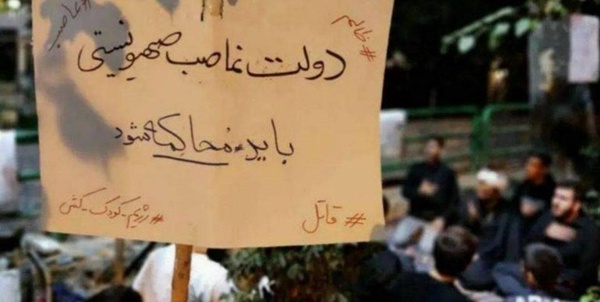 #غاصب
#ظالم
دولت غاصب صهیونیستی
باید محاکمه شود
#رژیم_کودک_کش
#قاتل